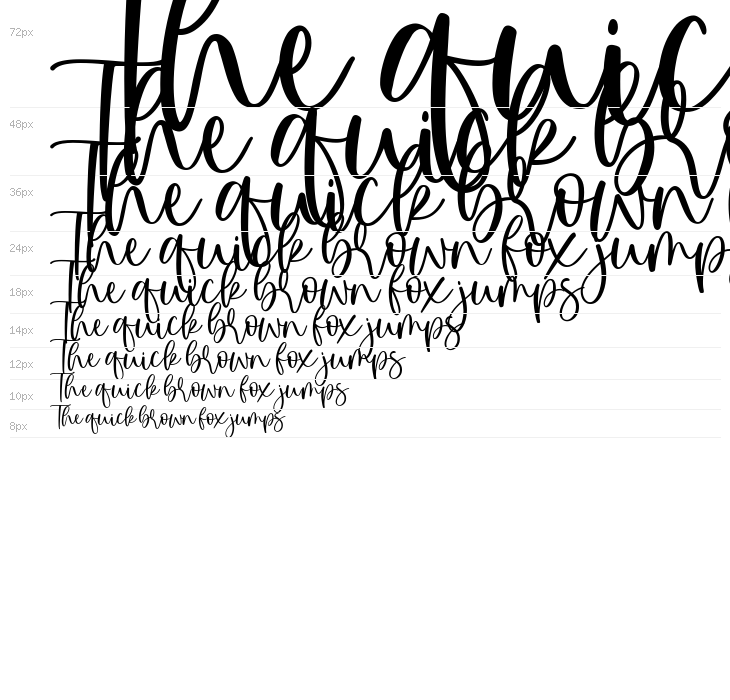 72px The quic
48px The quick b
36px The quick brown
24px The quick brown fox jump
18px The quick brown fox jumps
14px The quick brown fox jumps
12px The quick brown fox jumps
10px The quick brown fox jumps
8px The quick brown fox jumps